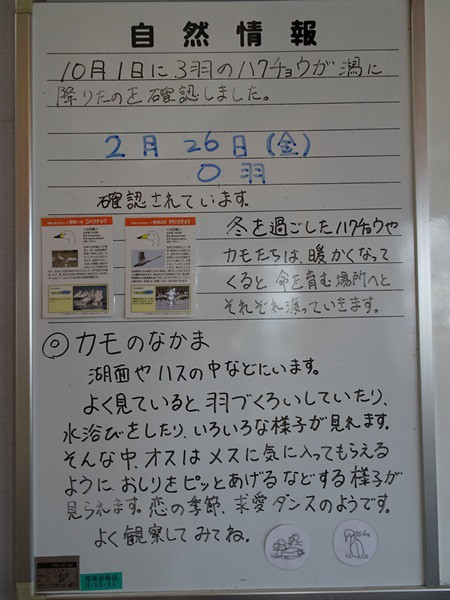 自然情報
10月1日に3羽のハクチョウが潟に
降りたのを確認しました。
2月 26日(金)
0 羽
確認されています。
コハクチョウ
オオハクチョウ
冬を過ごしたハクチョウや
カモたちは、暖かくなって
くると 命を育む場所へと
それぞれ渡っていきます。
◎カモのなかま
湖面やハスの中などにいます。
よく見ていると 羽づくろいしていたり、
水浴びをしたり、いろいろな様子が見れます。
そんな中、オスは メスに気に入ってもらえる
ように、おしりをピッとあげる などする 様子が
見られます。恋の季節、求愛ダンスのようです。
よく観察してみてね。